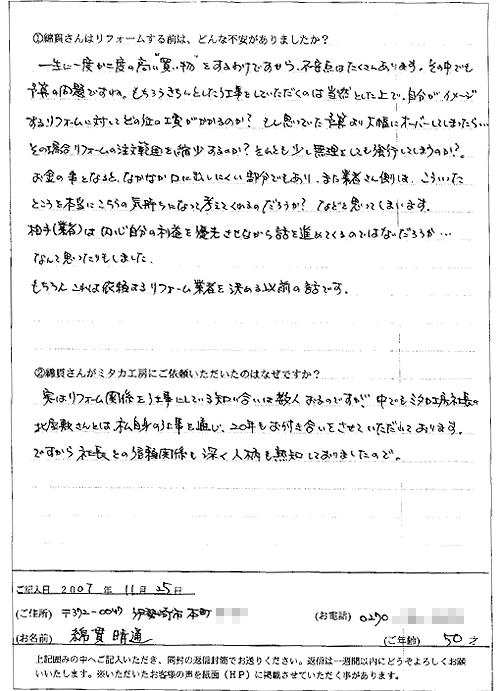 ①綿貫さんはリフォームする前は、どんな不安がありましたか？
一生に一度か二度の高い"買い物"をするわけですから、不安点はたくさんあります。その中でも
予算の問題ですかね。もちろんきちんとした工事をしていただくのは当然とした上で、自分がイメージ
するリフォームに対してどの位の工費がかかるのか？もし思っていた予算より大幅にオーバーしてしまったら…
その場合リフォームの注文範囲を縮少するのか？それとも少し無理をしても強行してしまうのか？。
お金の事となると、なかなか口に出しにくい部分でもあり、また業者さん側は、こういった
ところを本当にこちらの気持ちになって考えてくれるのだろうか？などと思ってしまいます。
相手(業者)は内心自分の利益を優先させながら話を進めてくるのではないだろうか…
なんて思ったりもしました。
もちろんこれは依頼するリフォーム業者を決める以前の話です。
②綿貫さんがミタカ工房にご依頼いただいたのはなぜですか？
実はリフォーム関係を仕事にしている知り合いは数人おるのですが、中でもミタカ工房社長の
北爪敷さんとは、私自身の仕事を通じ、20年もお付き合いをさせていただいております。
ですから社長との信頼関係も深く人柄も熟知しておりましたので。
ご記入日 2007年 11月 25日
(ご住所) 〒372-0047 伊勢崎市本町 (お電話) 0270
(お名前) 綿貫 晴通 (ご年齢) 50才
上記囲みの中へご記入いただき、同封の返信封筒でお送りください。返信は一週間以内にどうぞよろしくお願
いいたします。※いただいたお客様の声を紙面(HP)に掲載させていただく事があります。